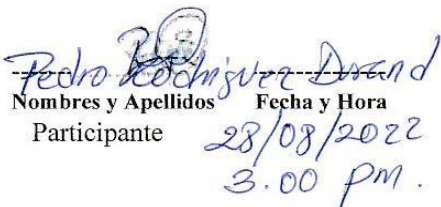 Pedro Rodriguez Durand
Nombres y Apellidos Fecha y Hora
Participante 28/08/2022
3.00 pm.